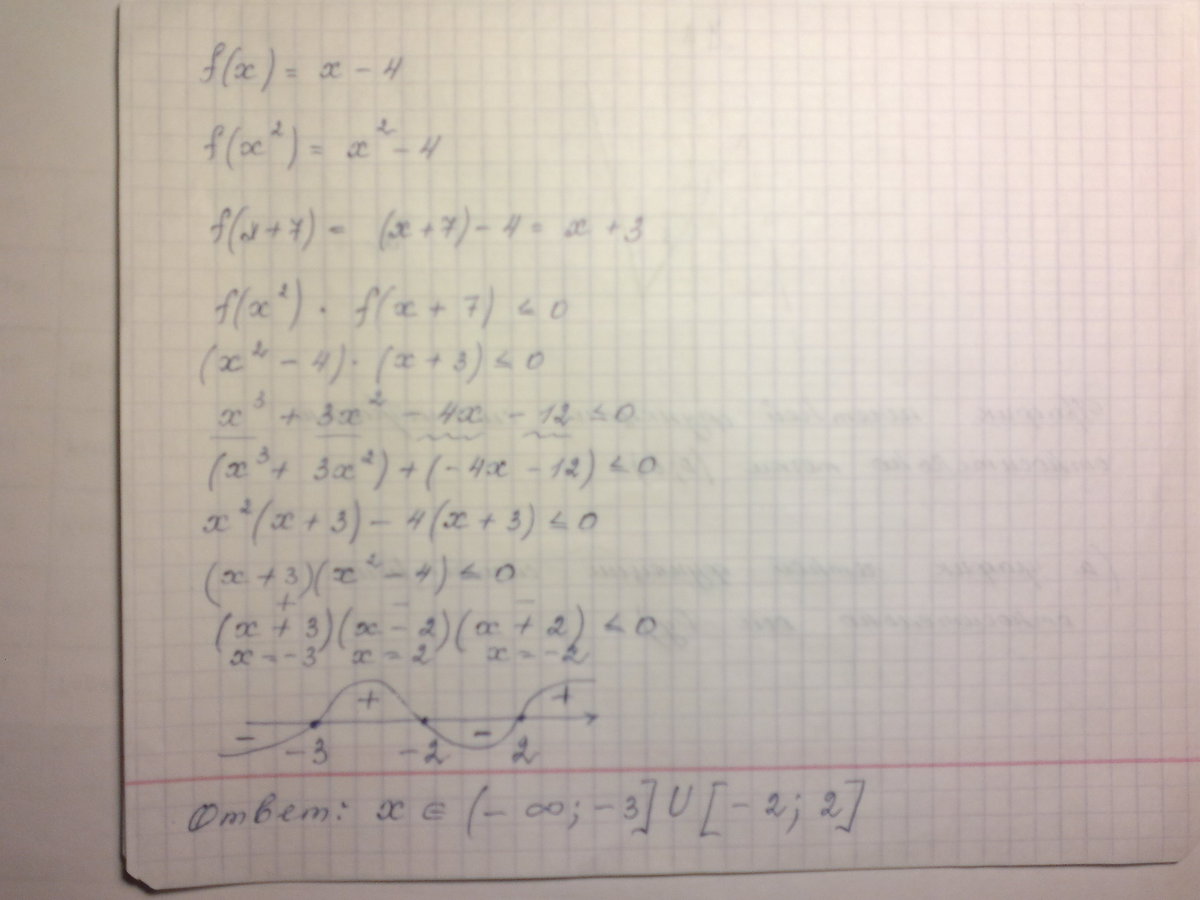 f(x) = x - 4
f(x²) = x² - 4
f(x+7) = (x+7) - 4 = x + 3
f(x²) · f(x + 7) ≤ 0
(x² - 4) · (x + 3) ≤ 0
x³ + 3x² - 4x - 12 ≤ 0
(x³ + 3x²) + (-4x - 12) ≤ 0
x²(x + 3) - 4(x + 3) ≤ 0
(x + 3)(x² - 4) ≤ 0
+ - -
(x + 3)(x - 2)(x + 2) ≤ 0
x = -3 x = 2 x = -2
- + - +
-3 -2 2
Ответ: x ∈ (-∞; -3] U [-2; 2]